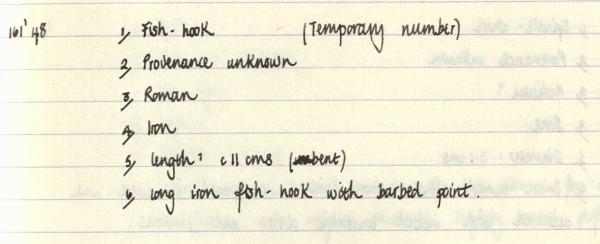 161'48 1, Fish-hook (Temporary number)
2, Provenance unknown
3, Roman
4, Iron
5, length: c 11 cms (bent)
6, long iron fish-hook with barbed point.